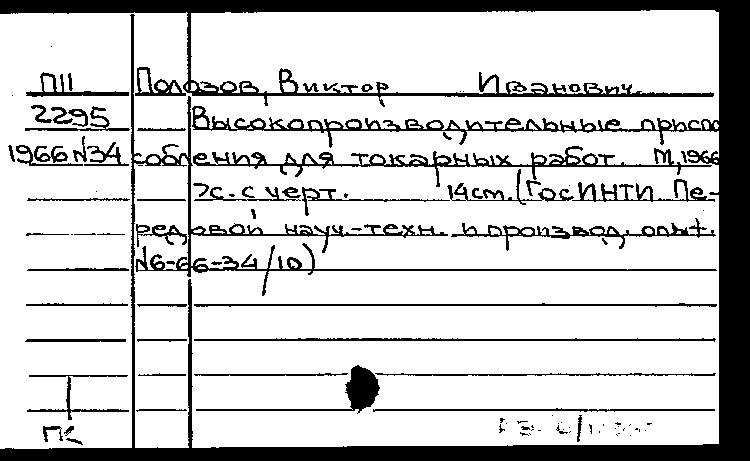 П11 Полозов, Виктор Иванович.
2295 Высокопроизводительные приспо
1966 N34 собления для токарных работ. М, 1966
7с. с черт. 14см. (ГосИНТИ Пе-
редовой науч.-техн. и производ. опыт.
N6-66-34/10)
ПК